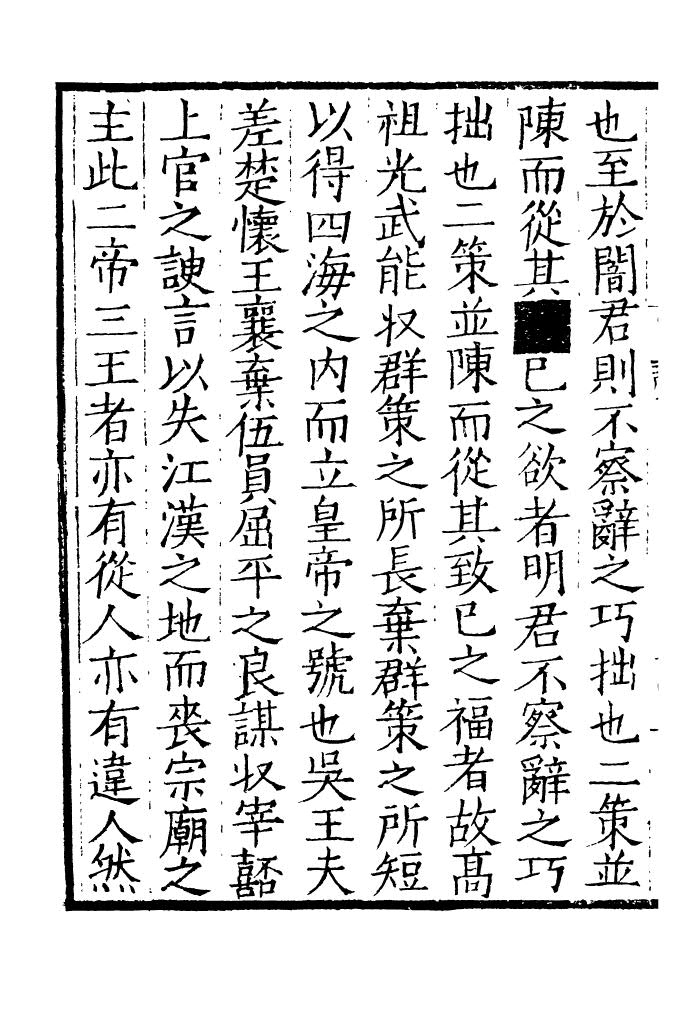 也至於闇君則不察辭之巧拙也二策並
陳而從其■已之欲者明君不察辭之巧
拙也二策並陳而從其致已之福者故髙
祖光武能収群策之所長棄群策之所短
以得四海之内而立皇帝之號也吳王夫
差楚懷王襄棄伍員屈平之良謀収宰嚭
上官之諛言以失江漢之地而喪宗廟之
主此二帝三王者亦有從人亦有違人然